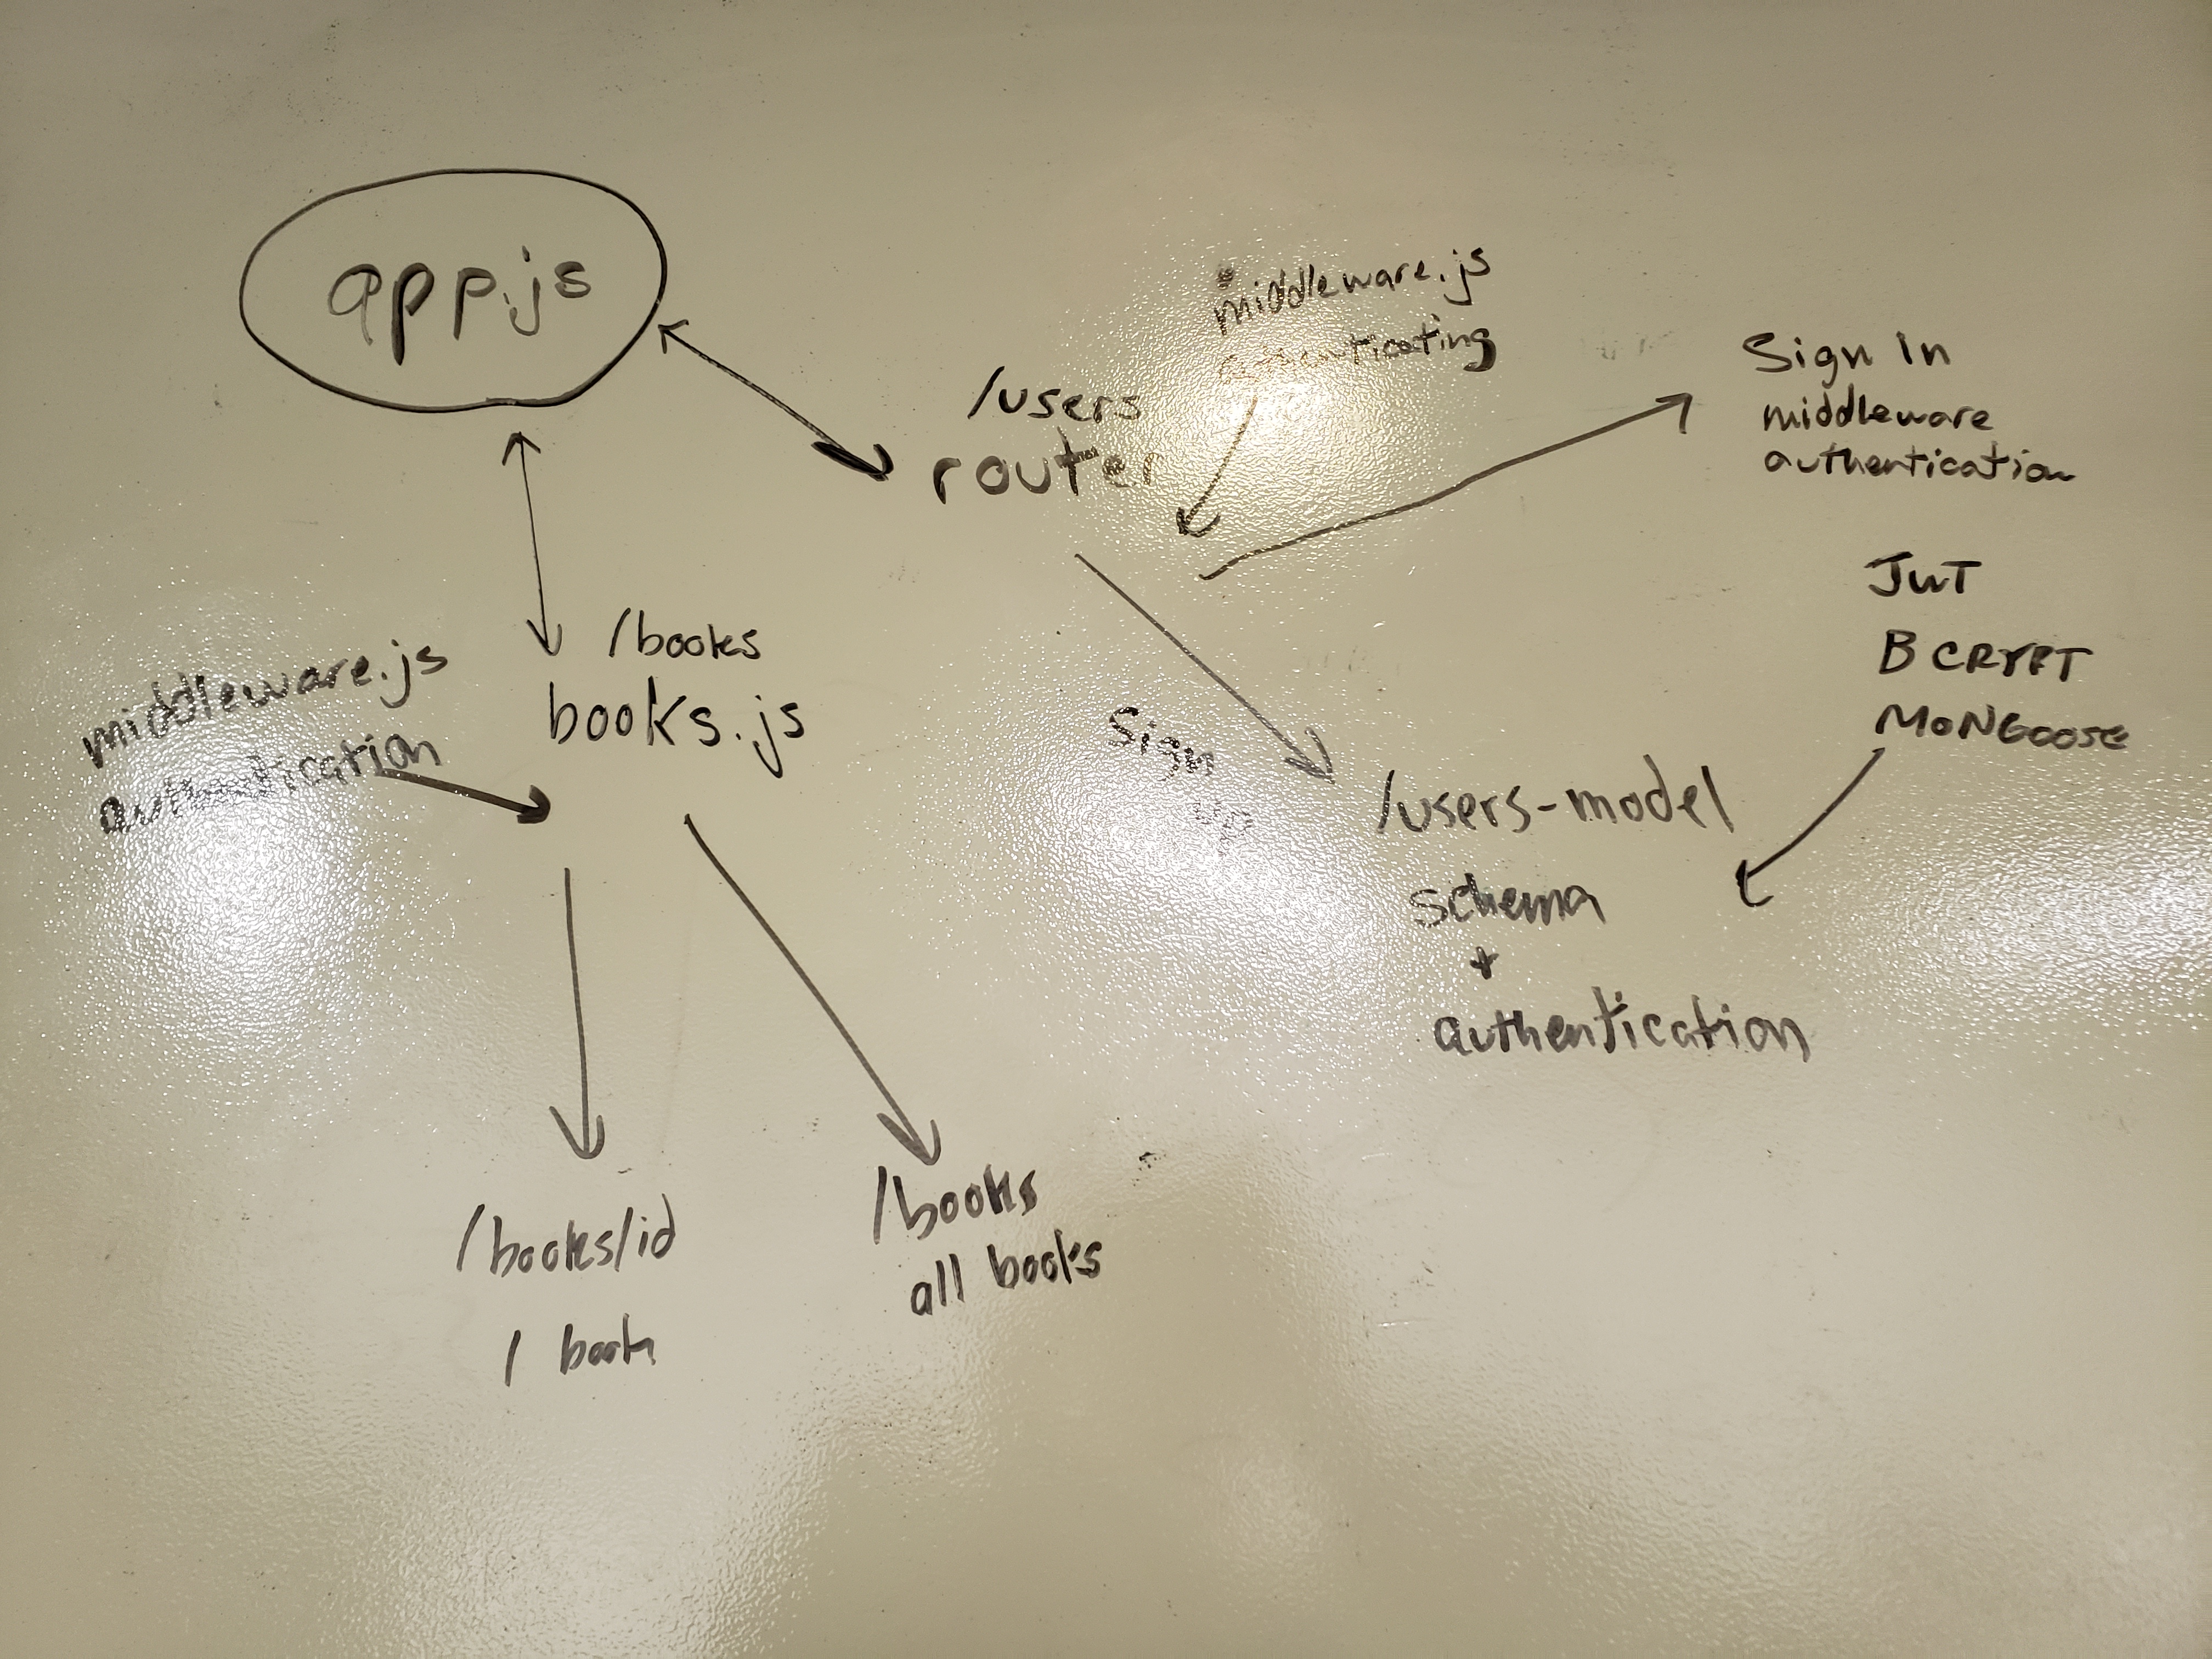 app.js
middleware.js
authenticating
/users
router
Sign In
middleware
authentication
JWT
BCRYPT
MONGOOSE
/books
books.js
middleware.js
authentication
Sign
up
/users-model
schema
+
authentication
/books/id
1 book
/books
all books